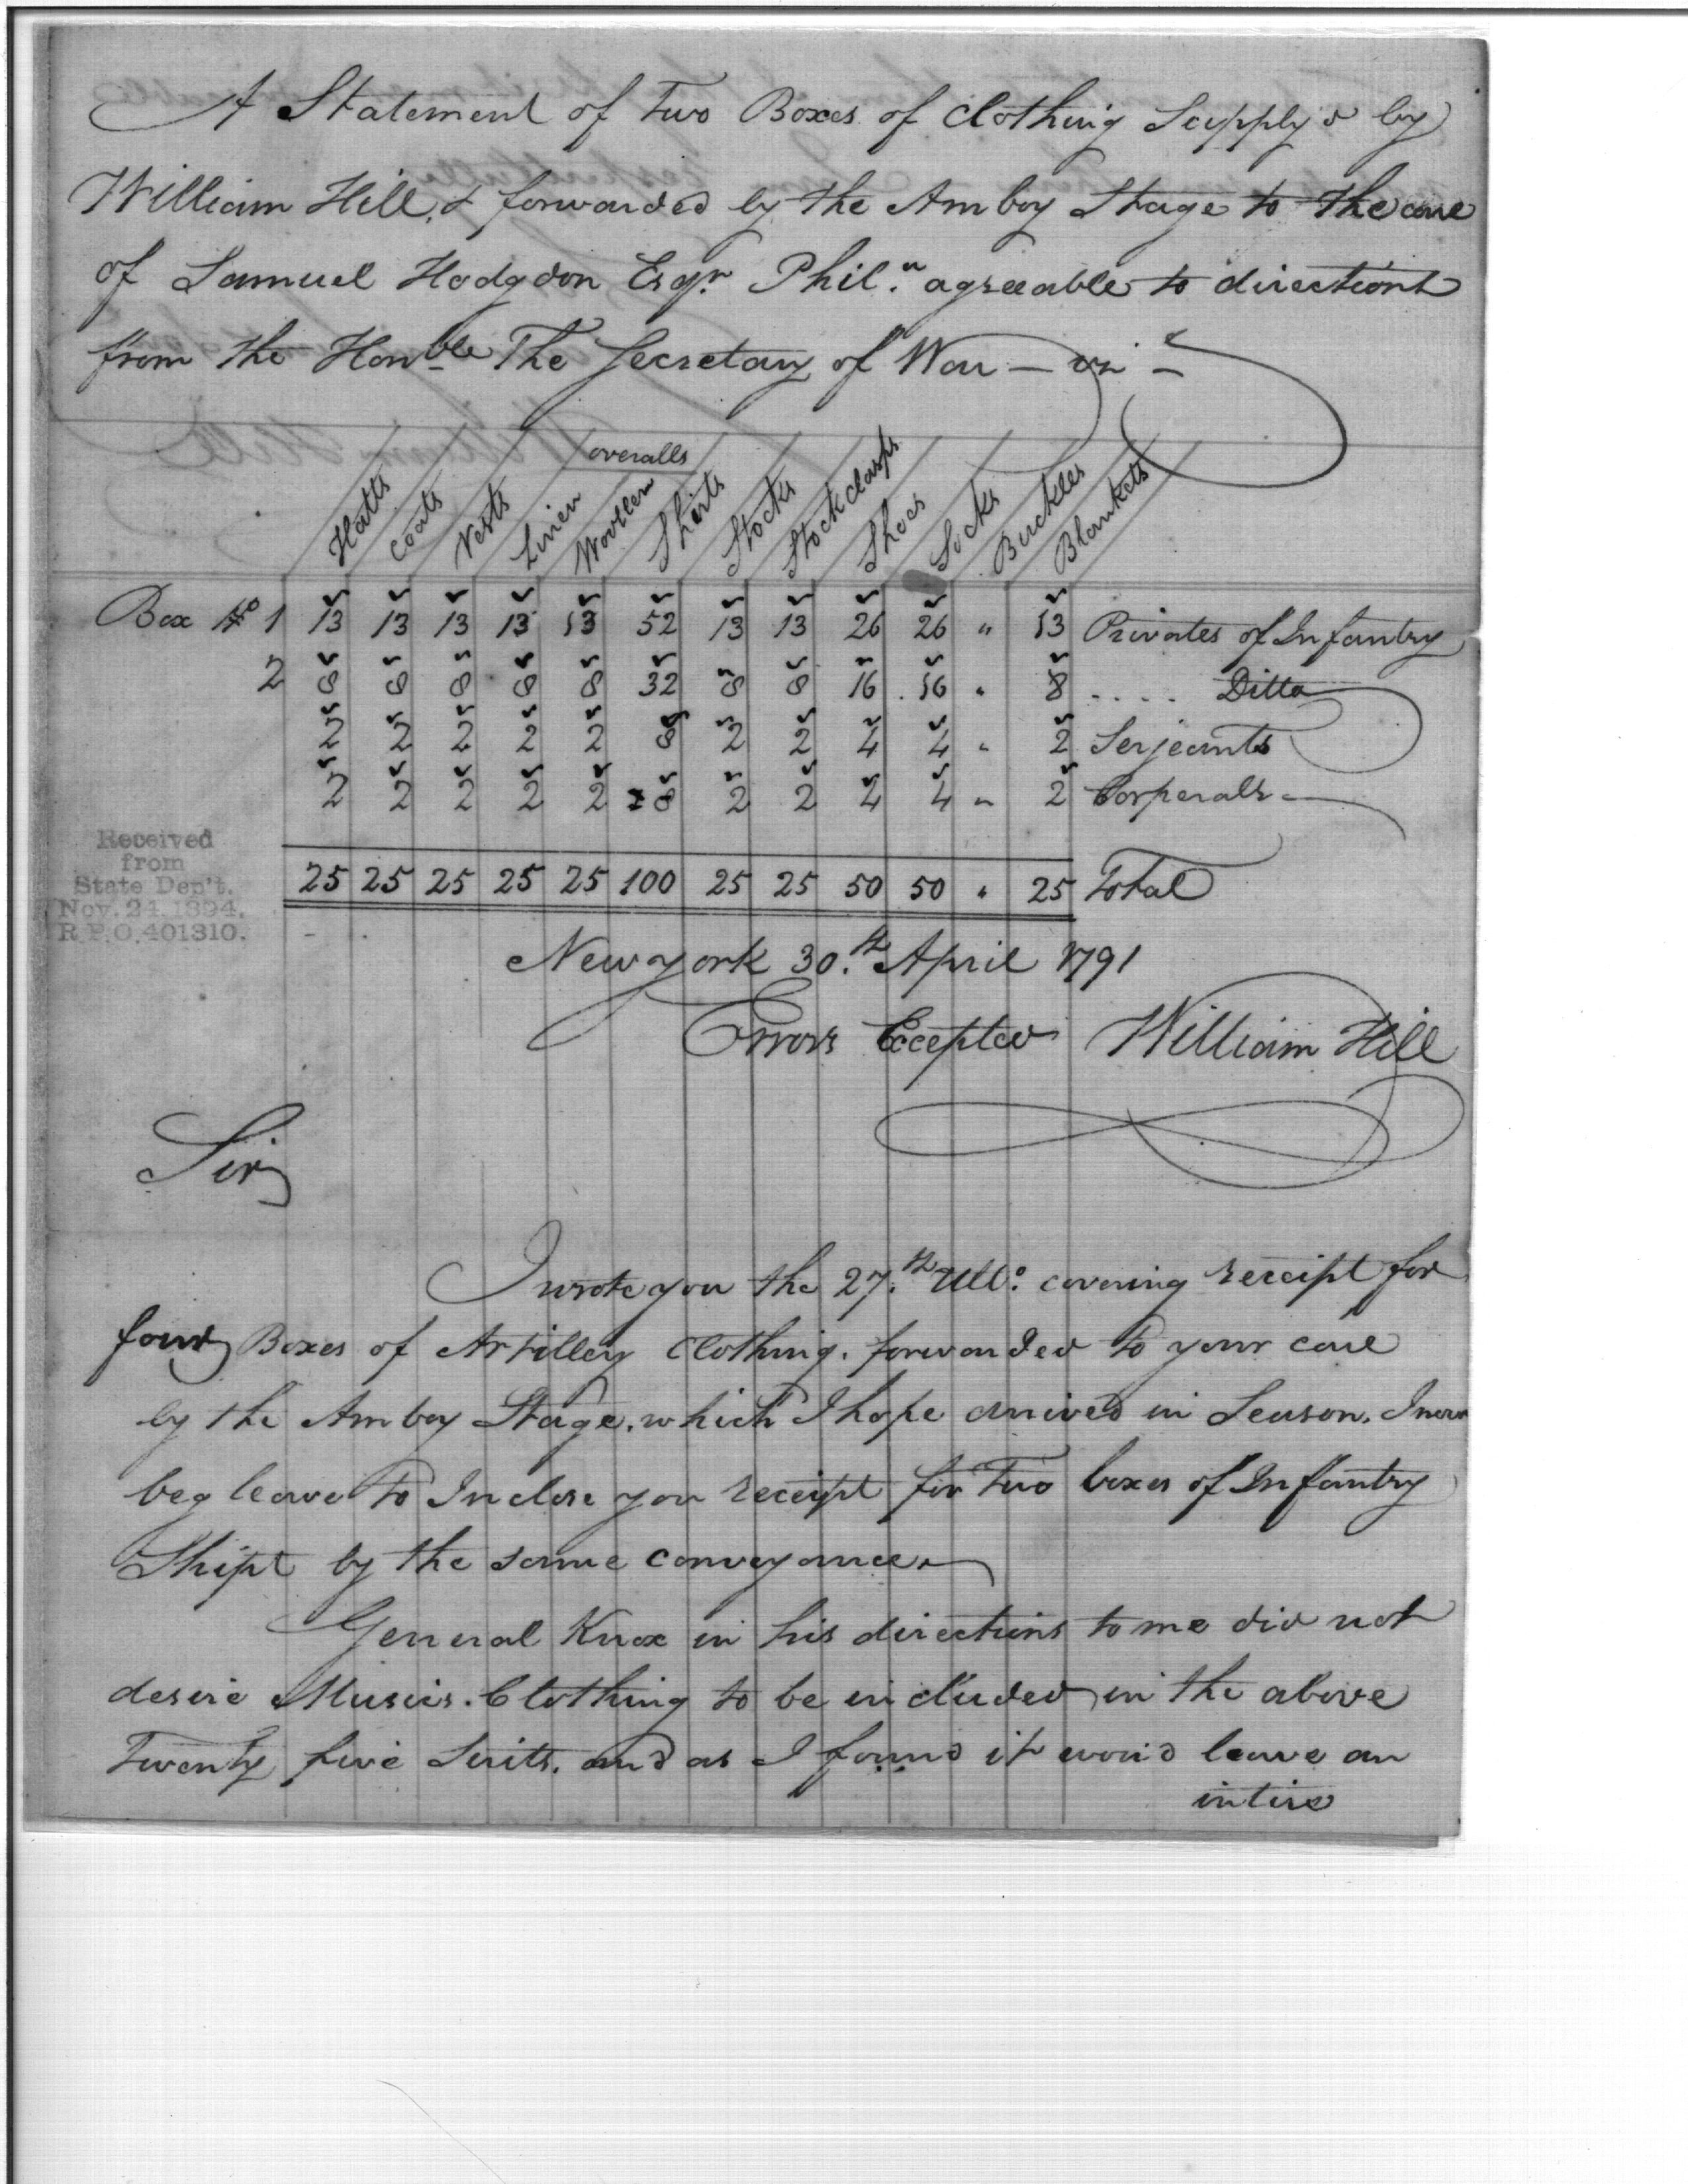 A Statement of Two Boxes of Clothing Supply'd by
William Hill, & forwarded by the Amboy Stage to the care
of Samuel Hodgdon Esqr. Phila. agreeable to directions
from the Honble The Secretary of War — viz —
overalls
Hatts Coats Vests Linen Woollen Shirts Stocks Stock clasps Shoes Socks Buckles Blankets
Box No 1 13 13 13 13 13 52 13 13 26 26 " 13 Privates of Infantry
2 8 8 8 8 8 32 8 8 16 16 " 8 .... Ditto
2 2 2 2 2 8 2 2 4 4 " 2 Serjeants
2 2 2 2 2 8 2 2 4 4 " 2 Corperals
25 25 25 25 25 100 25 25 50 50 " 25 Total
Received
from
State Dep't.
Nov. 24, 1894.
R.P.O. 401310.
New york 30.th April 1791
Errors Excepted William Hill
Sir
I wrote you the 27.th Ulto. covering receipt for
four Boxes of Artillery Clothing. forwarded to your care
by the Amboy Stage. which I hope arrived in Season. I now
beg leave to Inclose you receipt for Two boxes of Infantry
Shipt by the same conveyance.
General Knox in his directions to me did not
desire Musics. Clothing to be included in the above
Twenty five Suits. and as I found it wou'd leave an
intire